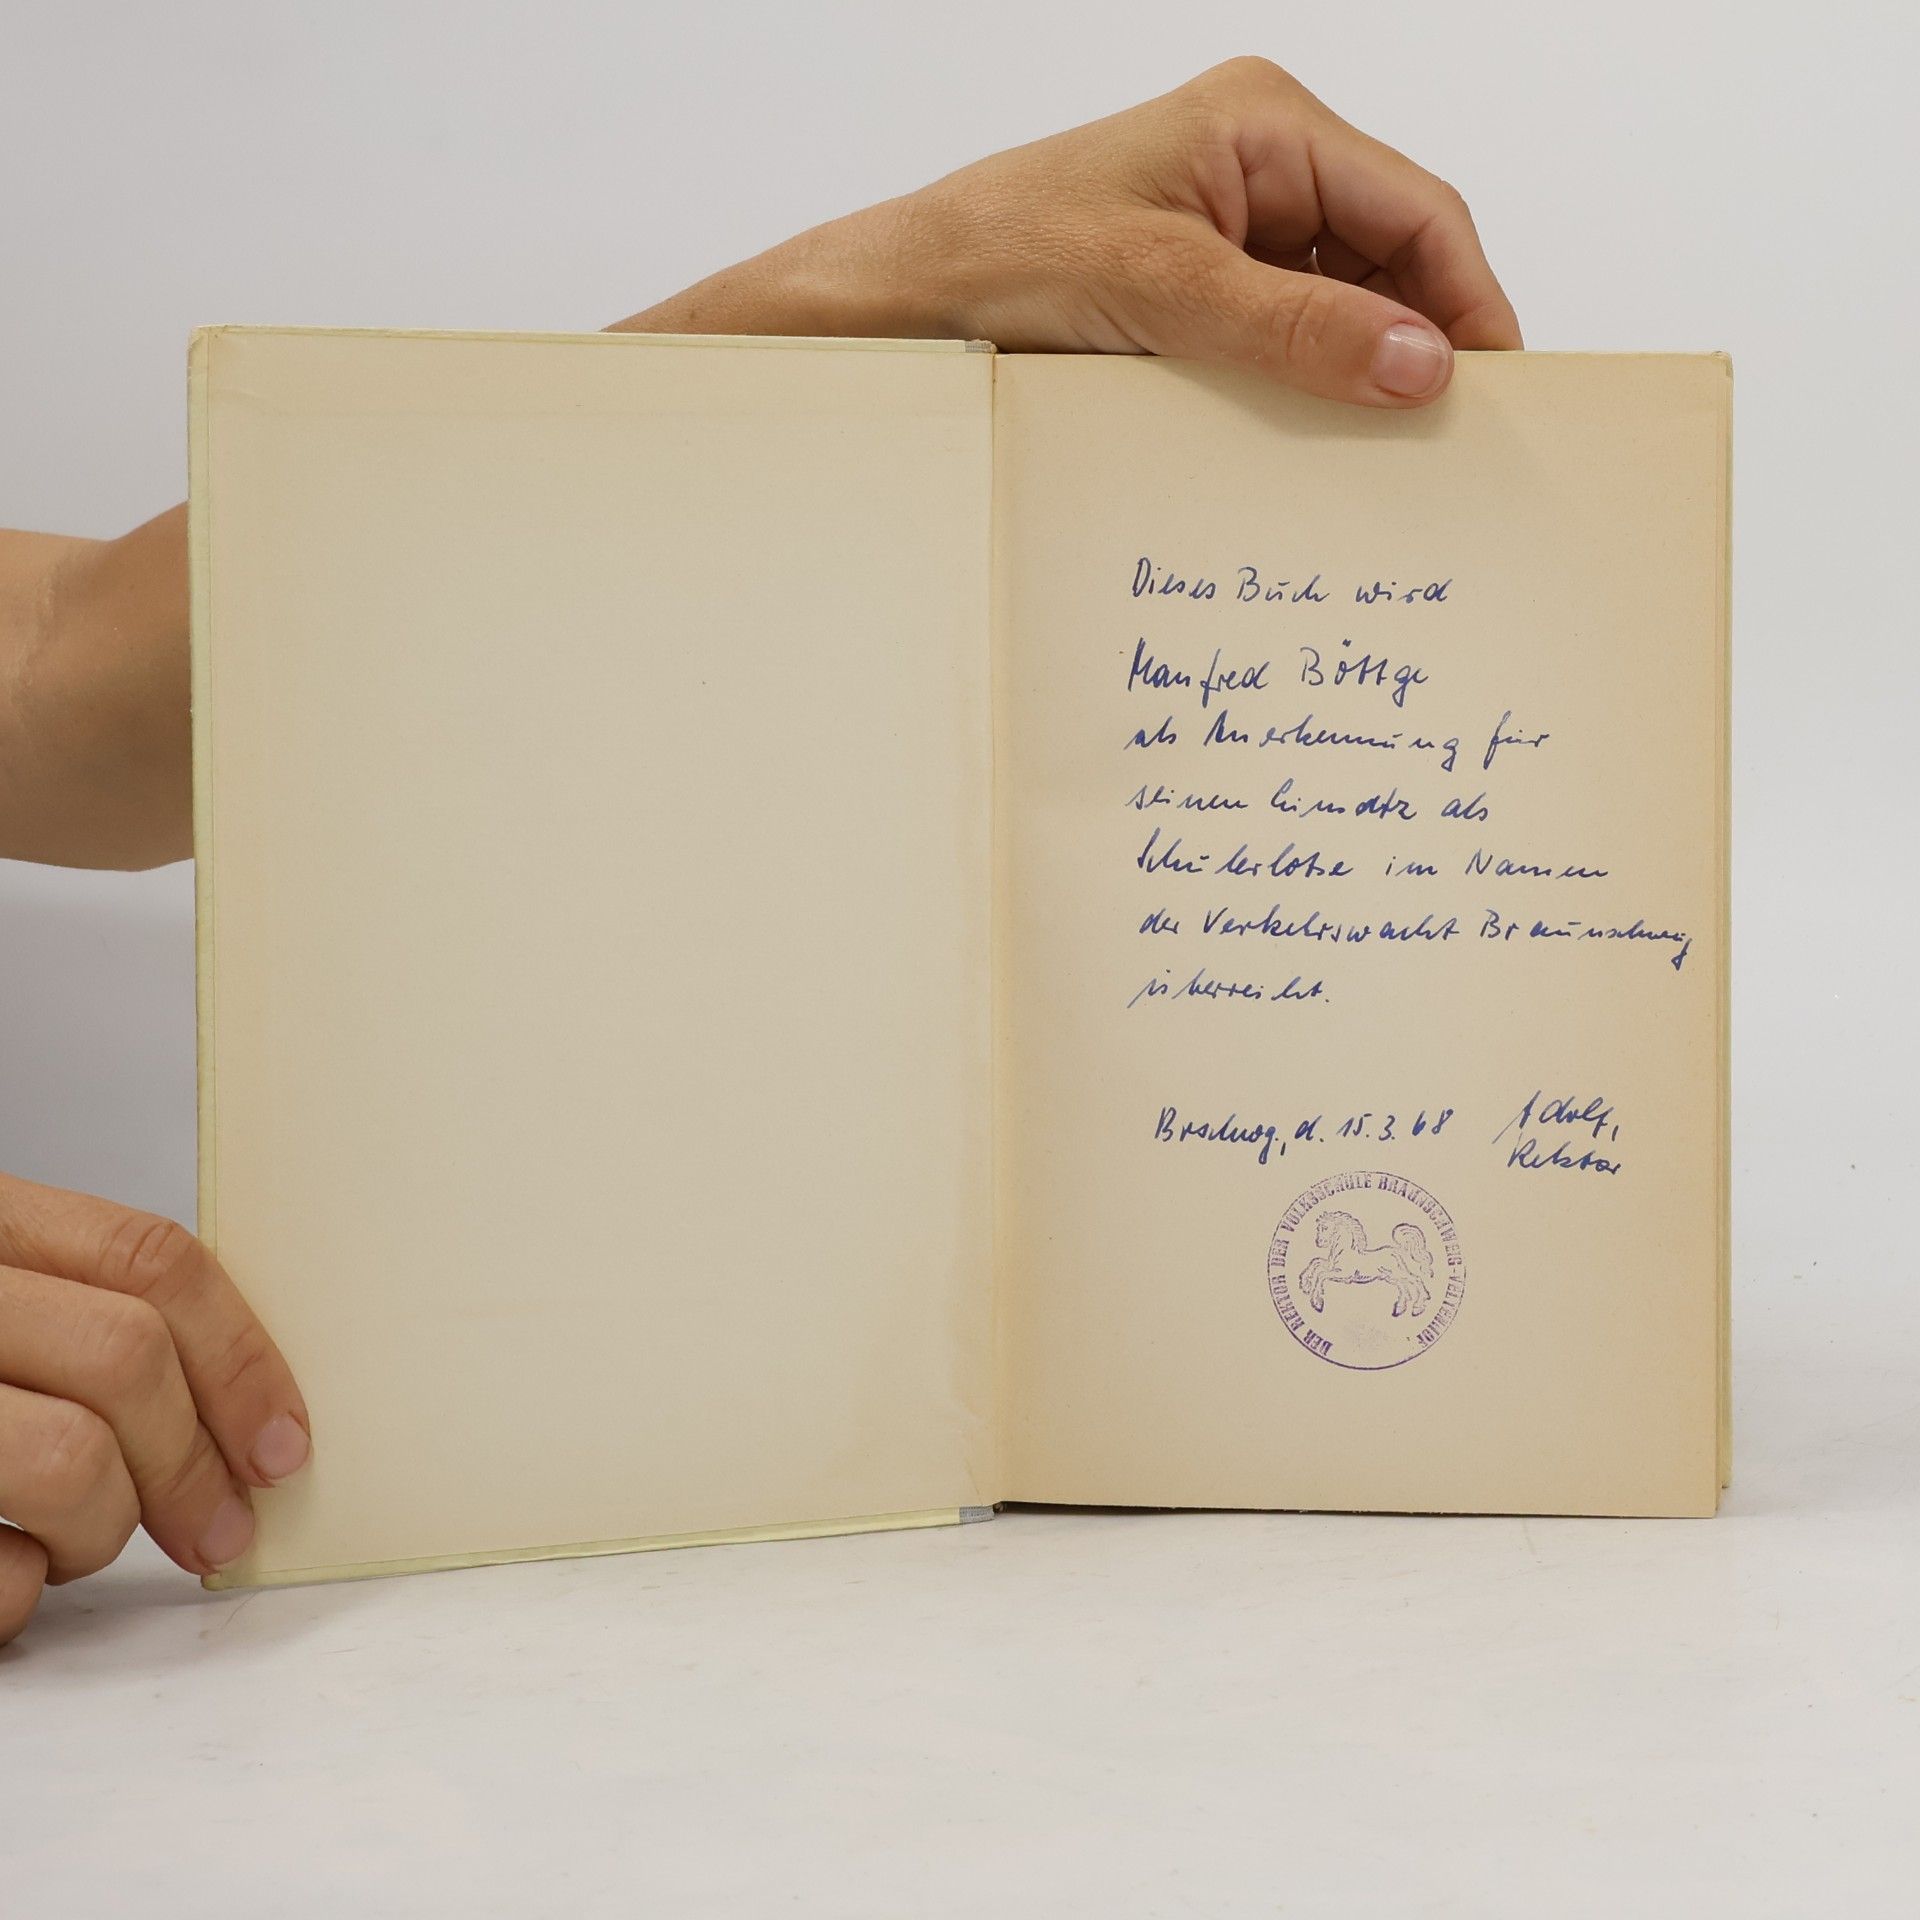 Dieses Buch wird
Manfred Böttge
als Anerkennung für
seinen Einsatz als
Schülerlotse im Namen
der Verkehrswacht Braunschweig
überreicht.
Brschwg., d. 15.3.68
Adolf,
Rektor
DER REKTOR DER VOLKSSCHULE BRAUNSCHWEIG-VELTENHOF